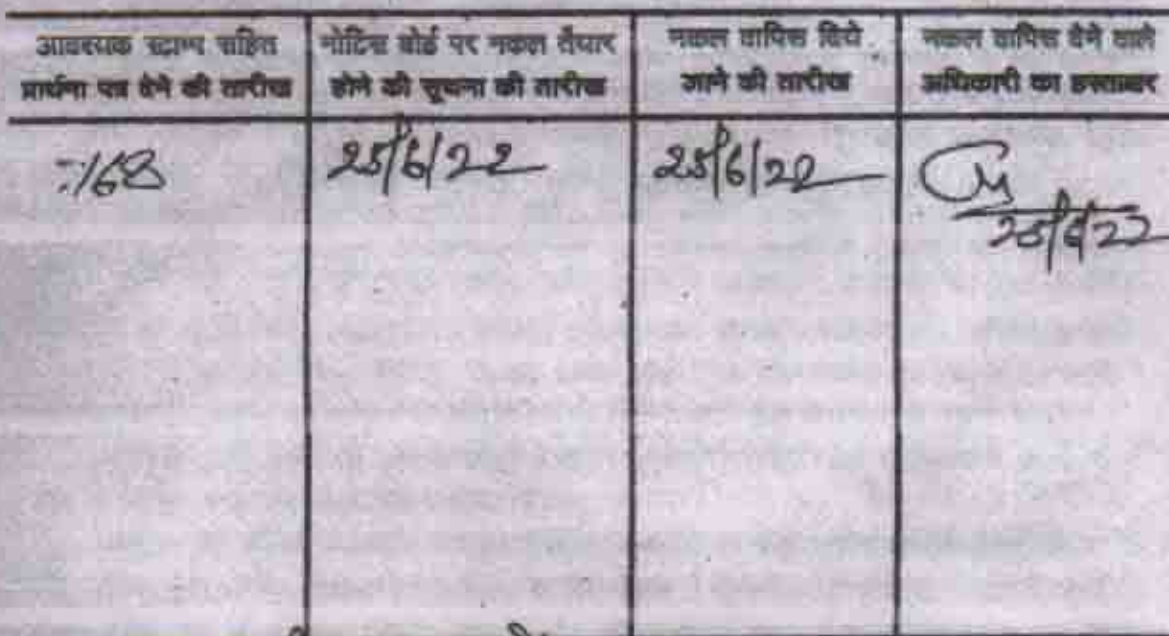 आवश्यक स्टाम्प सहित
प्रार्थना पत्र देने की तारीख
नोटिस बोर्ड पर नकल तैयार
होने की सूचना की तारीख
नकल वापिस दिये
जाने की तारीख
नकल वापिस देने वाले
अधिकारी का हस्ताक्षर
25/6/22
25/6/22
25/6/22